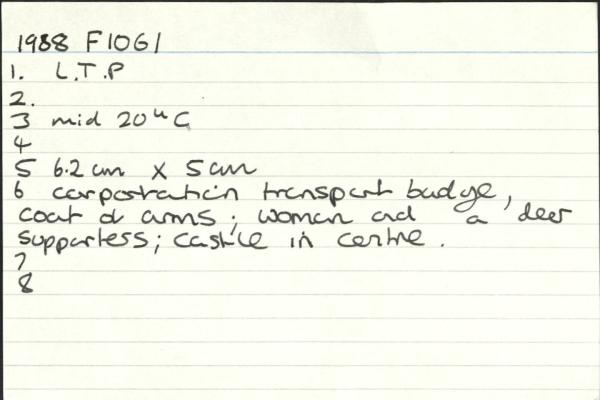 1988 F1061
1. L.T.P
2.
3 mid 20th C
4
5 6.2cm X 5cm
6 corporation transport badge,
coat of arms; woman and a deer
supporters; castle in centre.
7
8